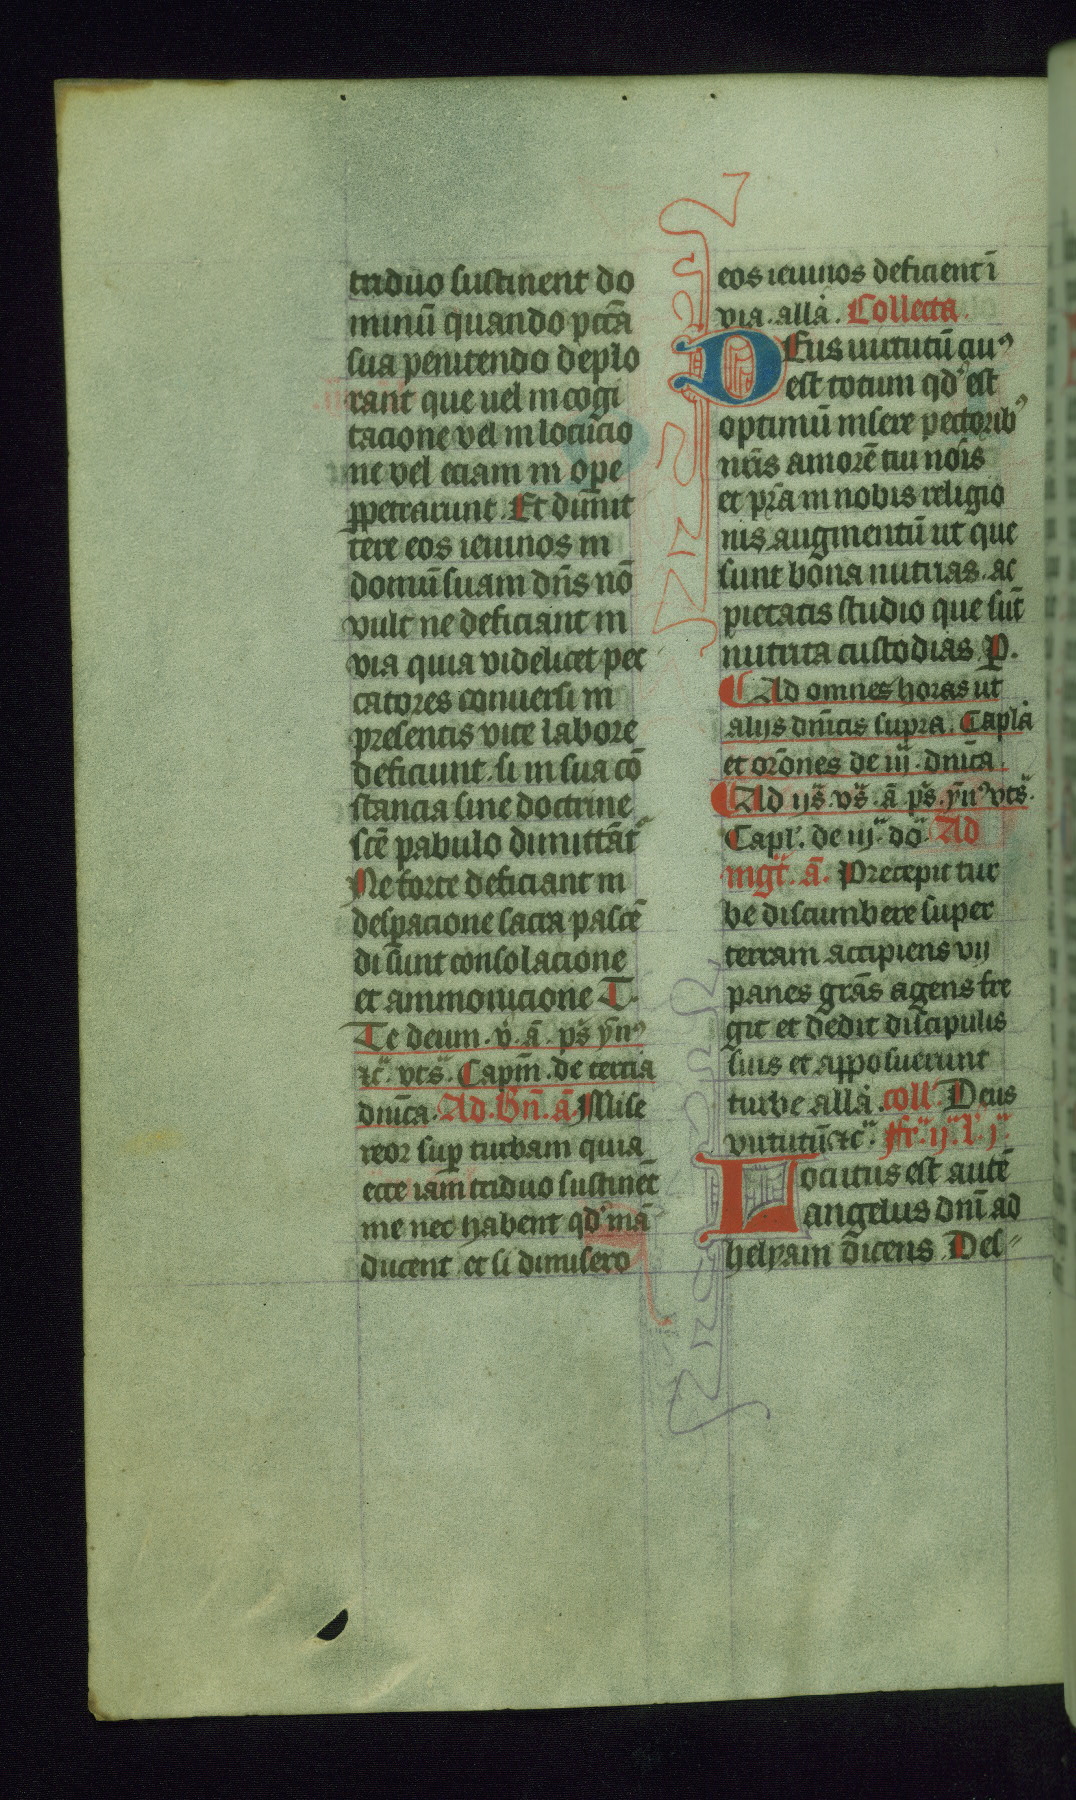 triduo sustinent do
minū quando pctā
sua penitendo deplo
rant que uel in cogi
tacione vel in locucio
ne vel eciam in ope
ꝑpetrarunt. Et dimit
tere eos ieiunos in
domū suam dn̄s nō
vult ne deficiant in
via quia videlicet pec
catores conuersi in
presentis vite labore
deficiunt. si in sua cō
stancia sine doctrine
scē pabulo dimittāt
Ne forte deficiant in
despacione sacra pascē
di sunt consolacione
et ammonicione T.
Te deum. v̄. ā. ps̄ ȳn᾿
⁊c̈. vts̈. Capm̄. de tercia
dnīca. Ad. Bn̄. ā. Mise
reor suꝑ turbam quia
ecce iam triduo sustinēt
me nec habent qd̾ mā
ducent et si dimisero
eos ieiunos deficient ī
via. allā. Collecta.
DEus uirtutū cuiꝰ
est totum qd̾ est
optimū insere pectoribꝰ
nrīs amorē tui noīs
et pr̄a in nobis religio
nis augmentū ut que
sunt bona nutrias. ac
pietatis studio que sūt
nutrita custodias. P.
Ad omnes horas ut
alijs dnīcis supra. Caplā
et orōnes de iij. dnīca.
Ad ijs̈. vs̈. ā. ps̄. ȳnꝰ vts̈.
Capl̾. de iij̈. dō̈. Ad
mgt̄. ā. Precepit tur
be discumbere super
terram accipiens vij
panes grās agens fre
git et dedit discipulis
suis et apposuerunt
turbe allā. coll̾. Deus
virtutū ⁊c̈. ffr̈. ij̈. l̾. j̈.
Locutus est autē
angelus dnī ad
helyam dīcens. Des-